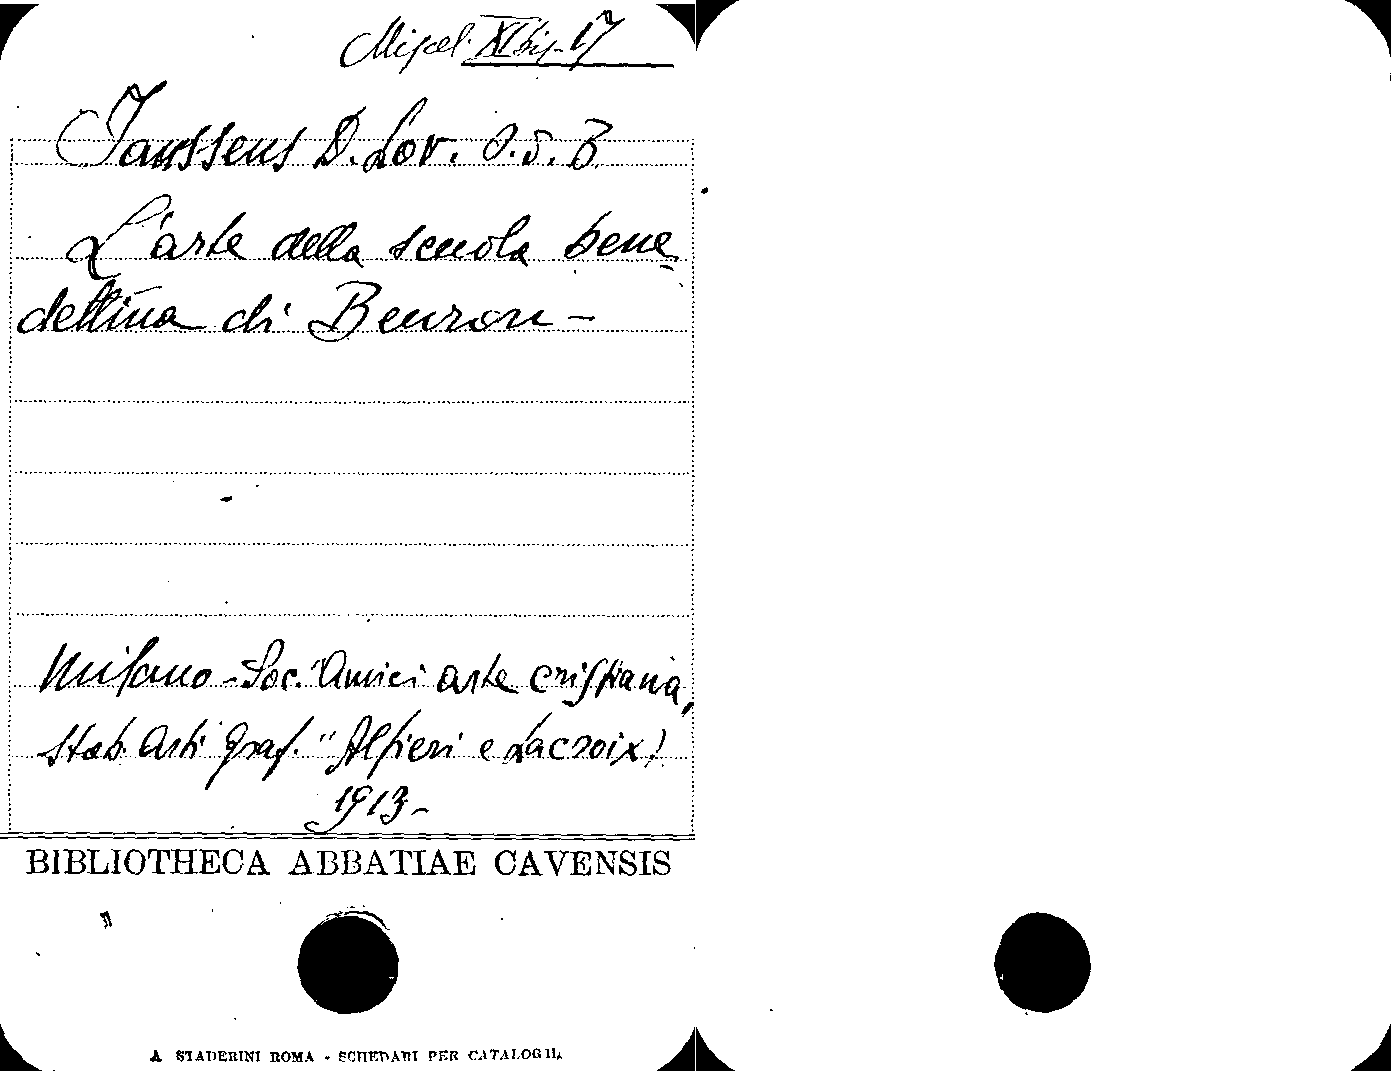 Miscel. XI bis - 17
Janssens D. Lov. O.S.B.
L'arte della scuola bene
dettina di Beuron -
Milano - Soc. "Amici arte cristiana,
Stab. Arti Graf. "Alfieri e Lacroix)
1913 -
BIBLIOTHECA ABBATIAE CAVENSIS
A STADERINI ROMA - SCHEDARI PER CATALOGHI